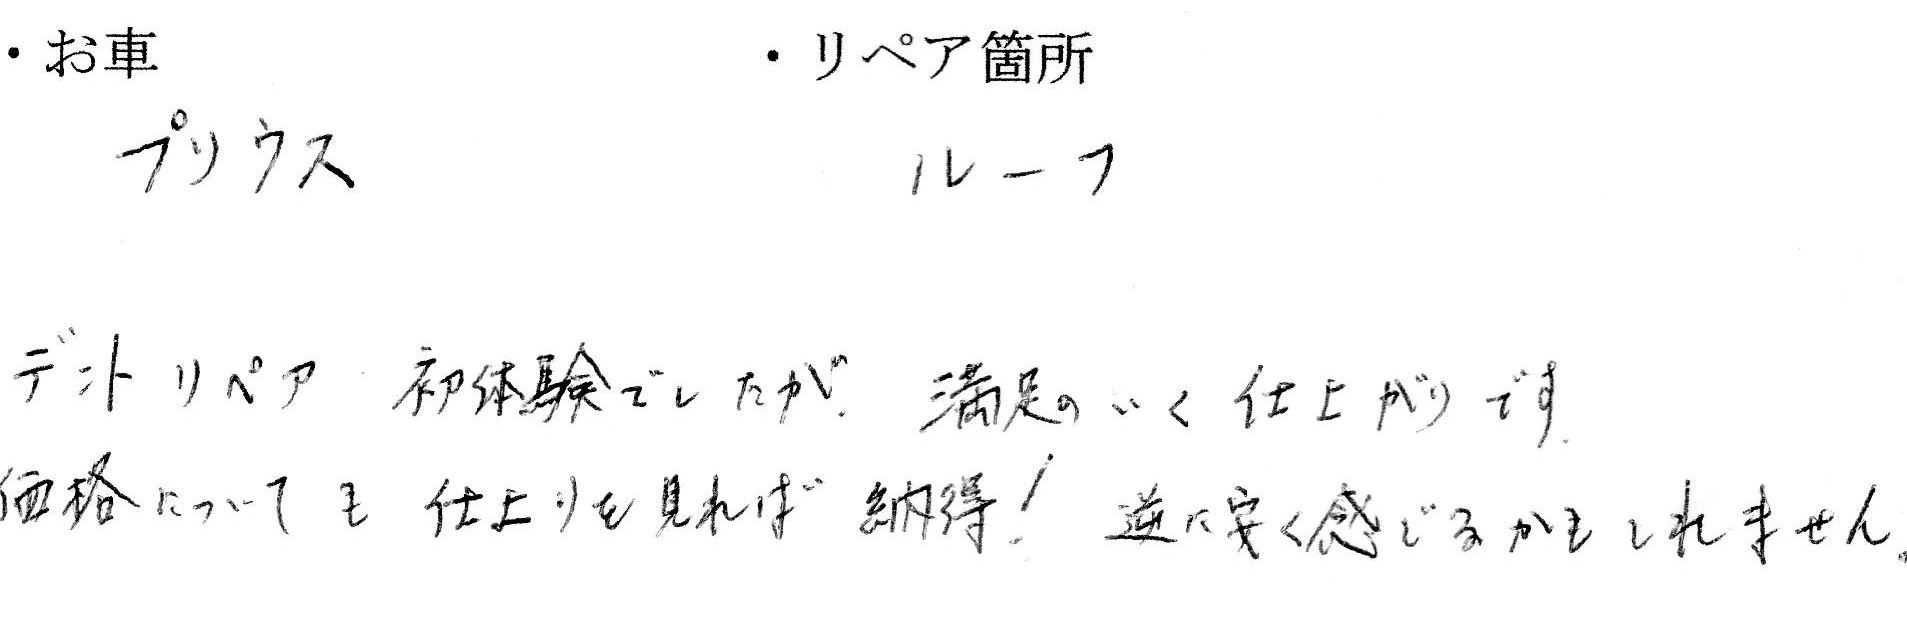 ・お車　・リペア箇所
プリウス　ルーフ
デントリペア 初体験でしたが、満足のいく仕上がりです。
価格についても 仕上りを見れば 納得! 逆に安く感じるかもしれません。